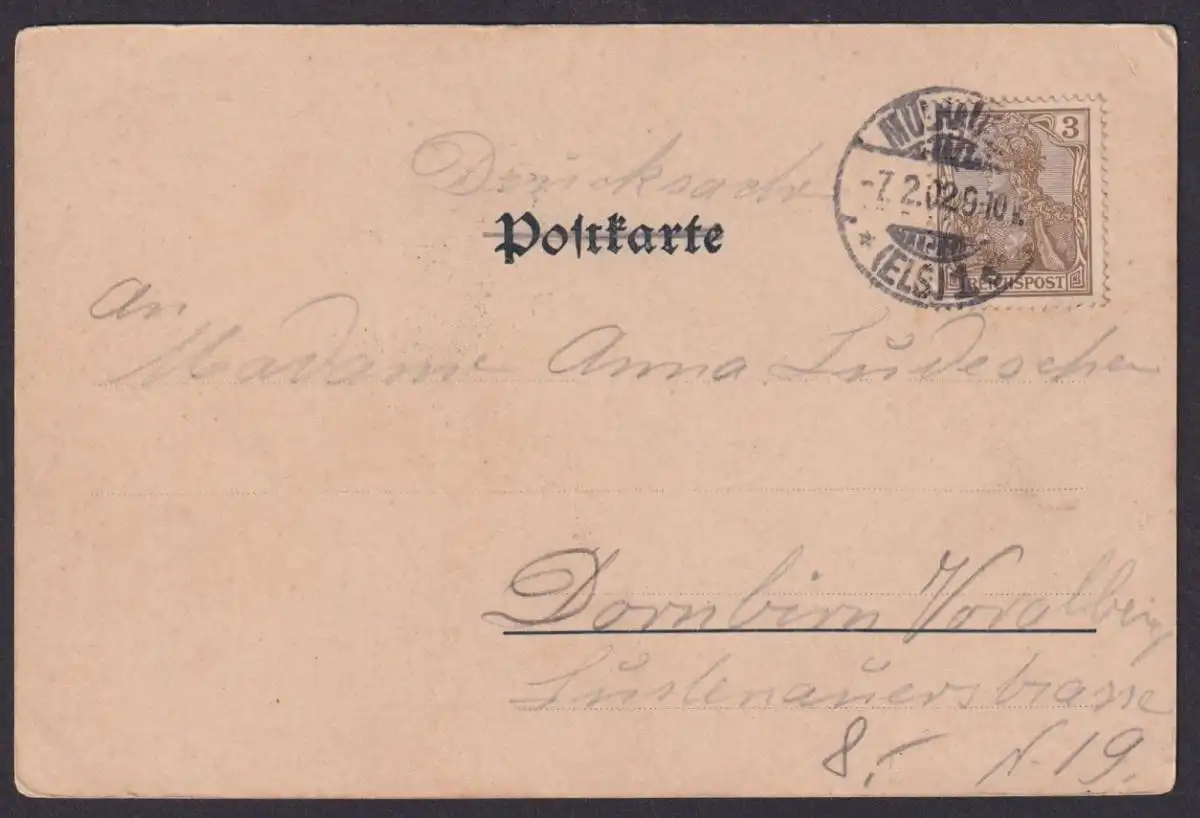 Drucksache
Postkarte
3
MÜLHAUSEN
-7.2.02.9-10V.
* (ELS.) 1 *
REICHSPOST
An
Madame Anna Ludescher
Dornbirn Voralberg
Lustenauerstrasse
8,- N. 19.